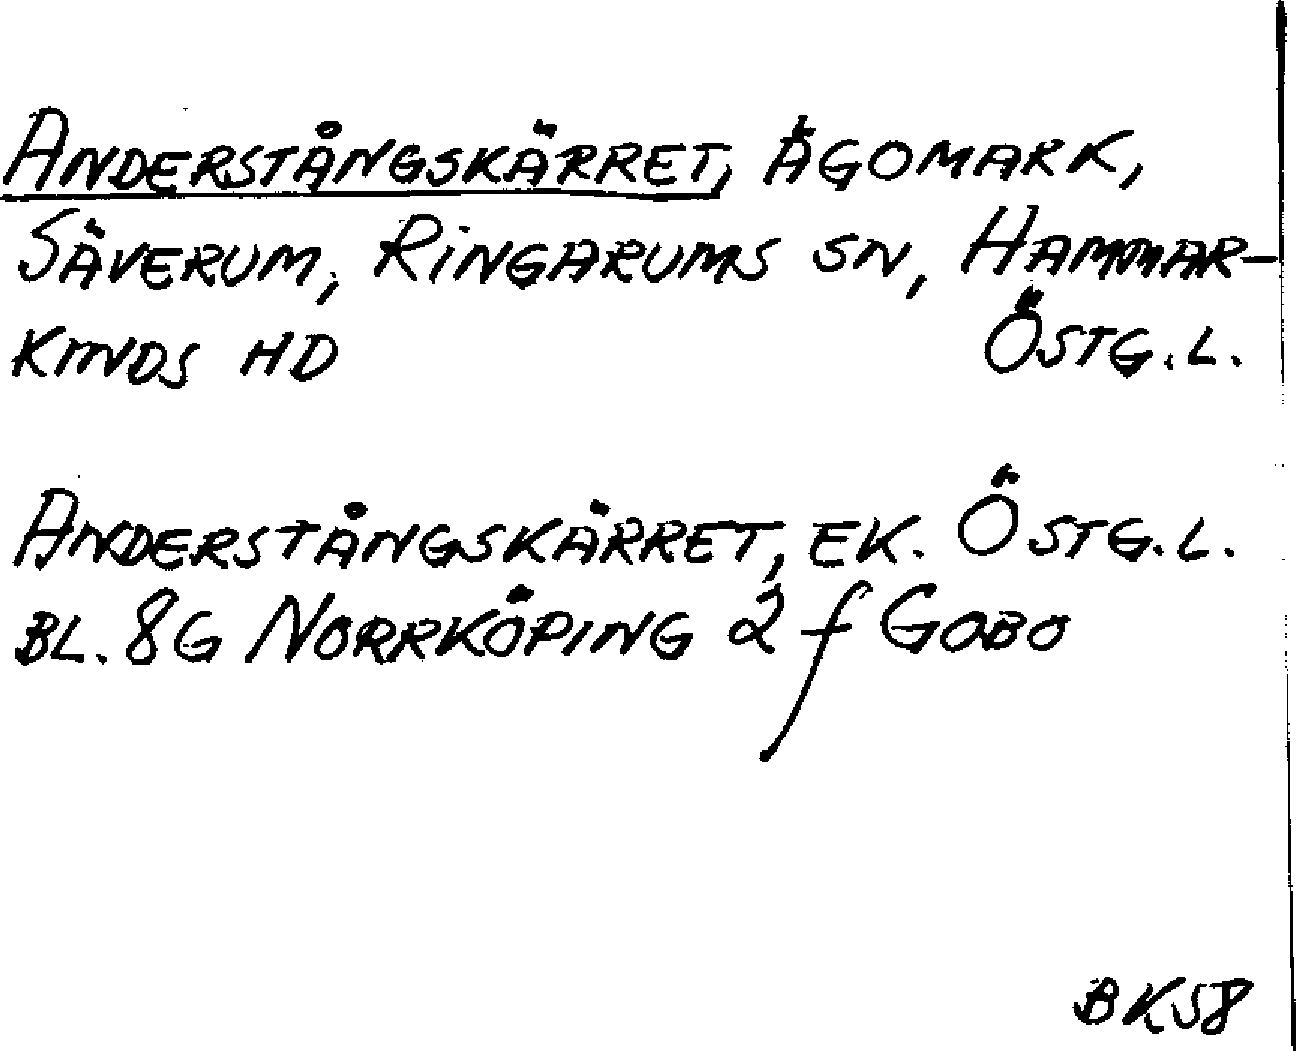 ANDERSTÅNGSKÄRRET, ÄGOMARK,
SÄVERUM, RINGARUMS SN, HAMMAR-
KINDS HD ÖSTG.L.
ANDERSTÅNGSKÄRRET, EK. ÖSTG.L.
BL. 8G NORRKÖPING 2 f GOBO
BK58